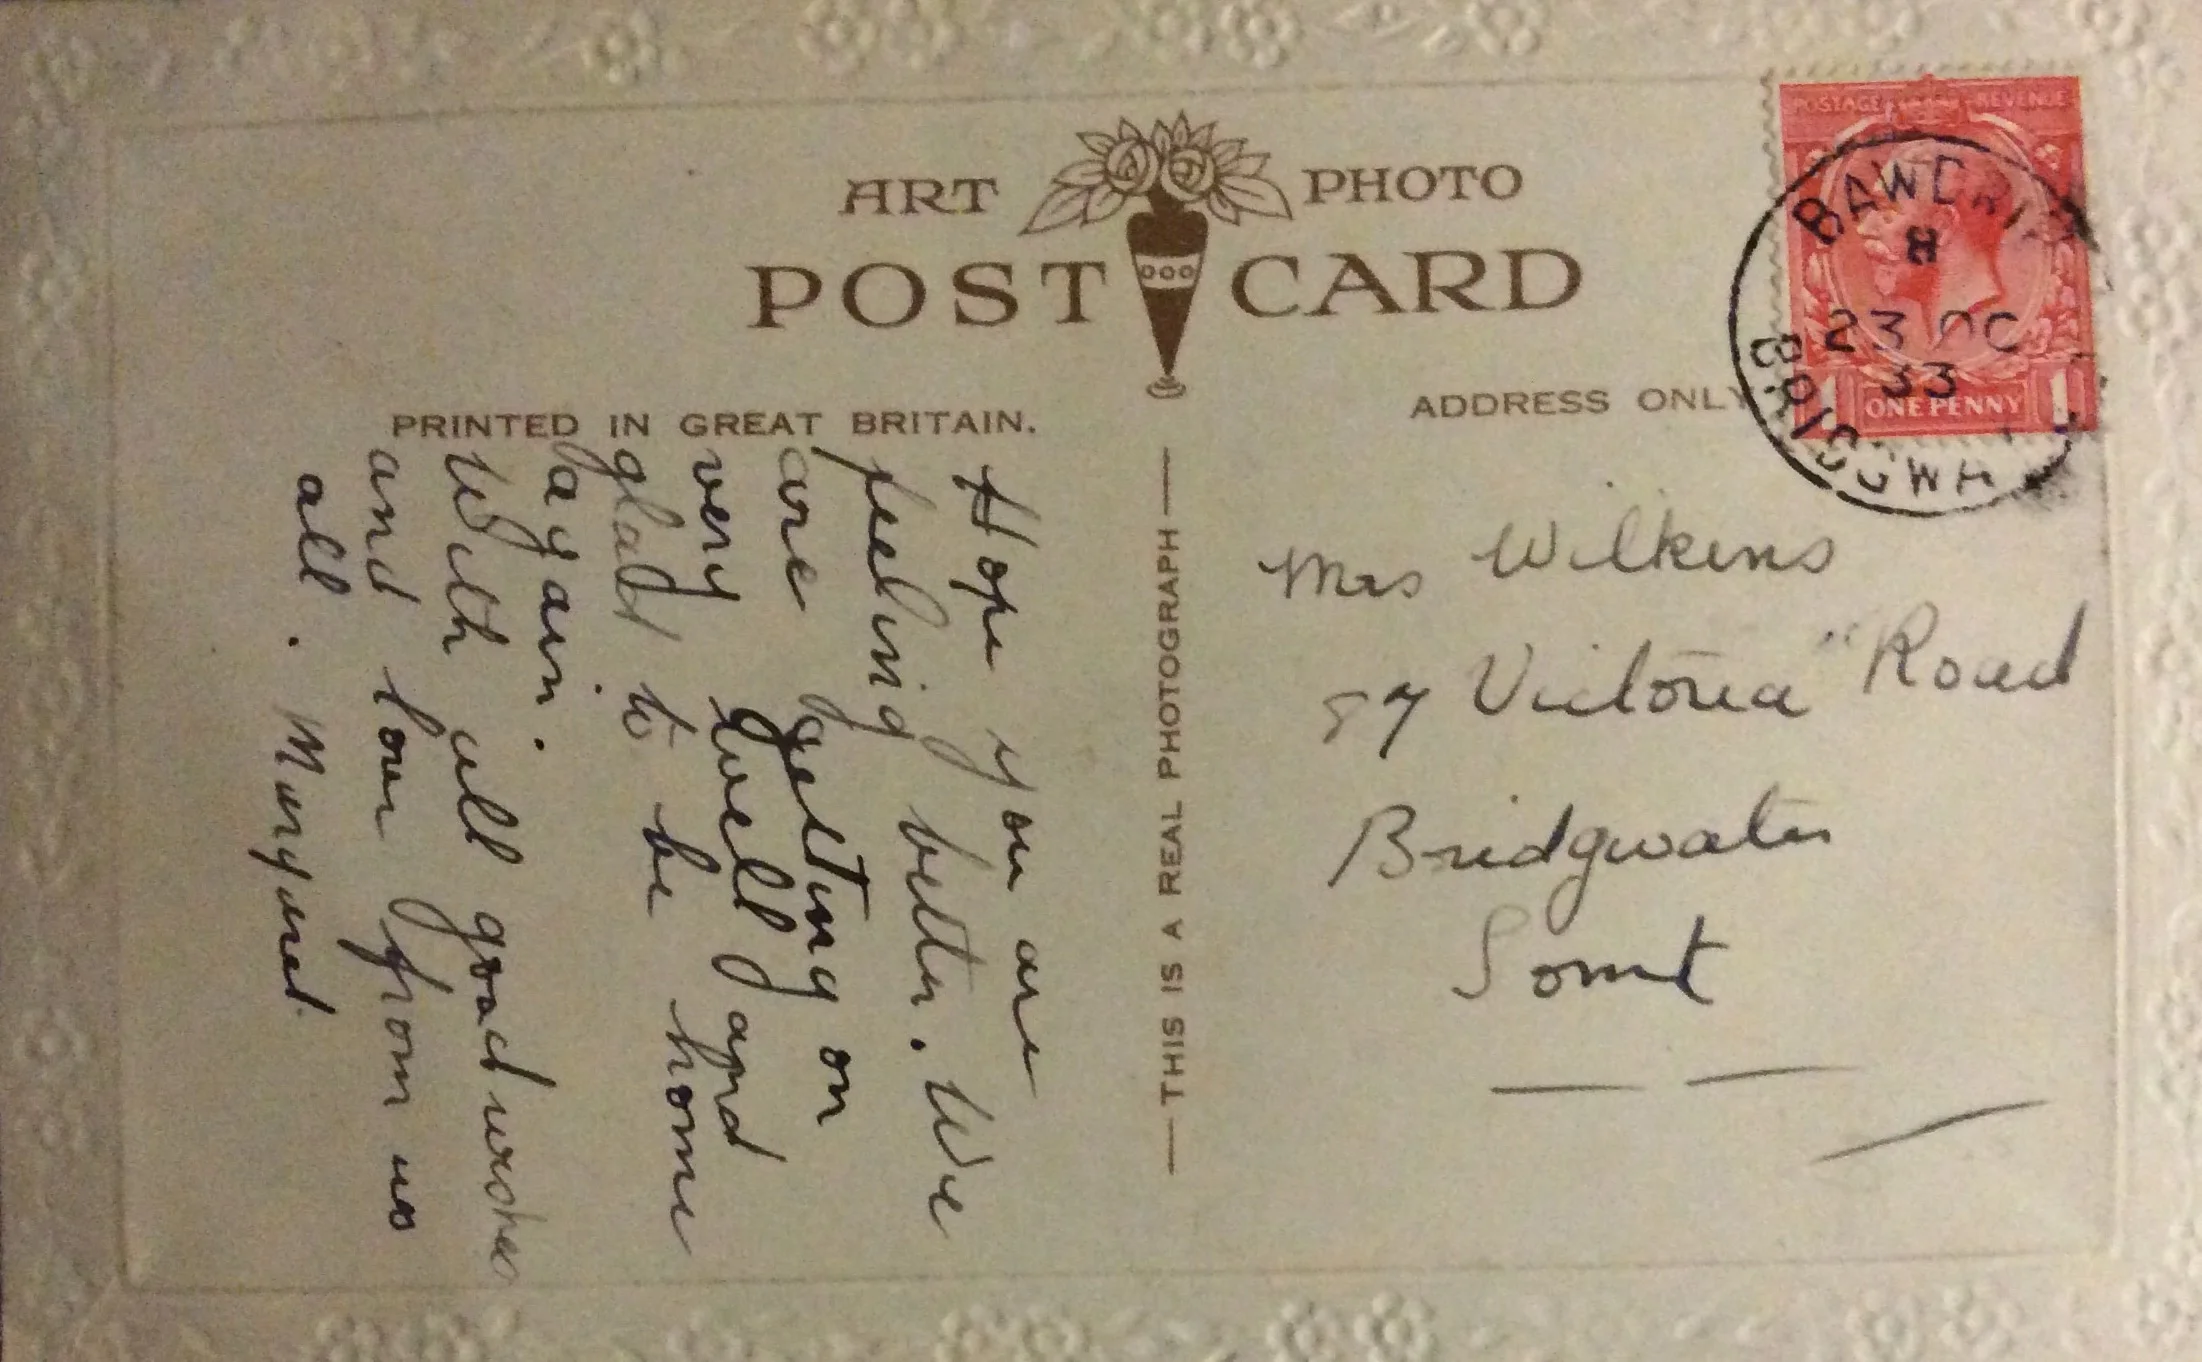 ART PHOTO
POST CARD
PRINTED IN GREAT BRITAIN.
ADDRESS ONLY
THIS IS A REAL PHOTOGRAPH
POSTAGE REVENUE
1 ONE PENNY 1
23 OC
33
Hope you are
feeling better. We
are getting on
very well and
glad to be home
again.
With all good wishes
and love from us
all.
Mrs Wilkins
87 Victoria Road
Bridgwater
Somt